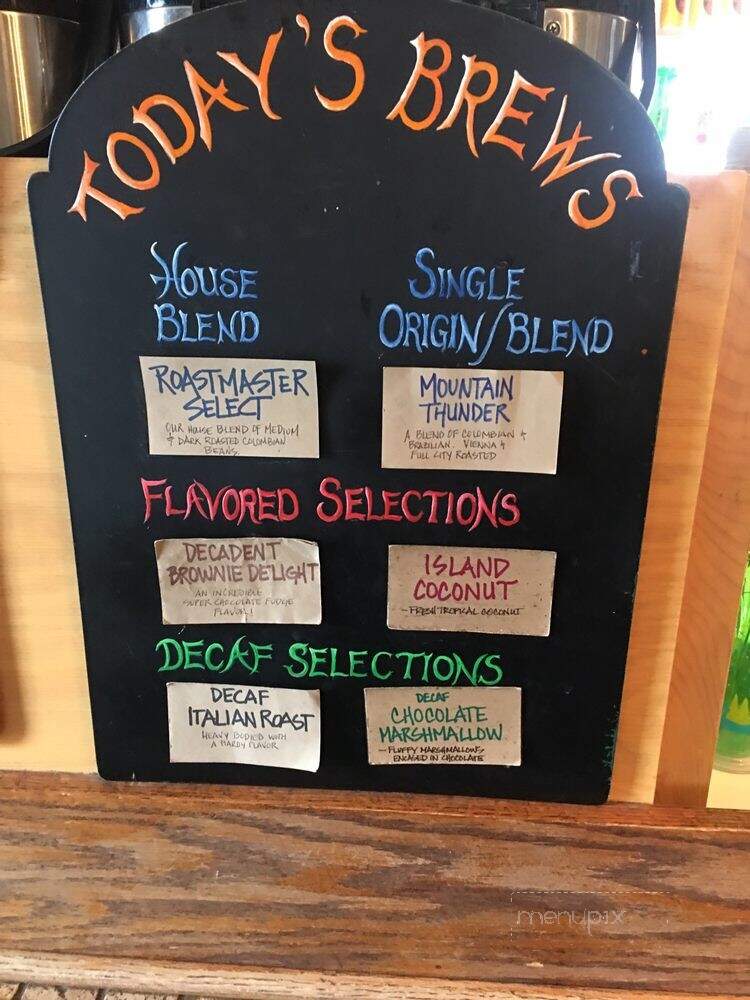 TODAY'S BREWS
HOUSE
BLEND
ROASTMASTER
SELECT
OUR HOUSE BLEND OF MEDIUM
& DARK ROASTED COLOMBIAN
BEANS.
SINGLE
ORIGIN/BLEND
MOUNTAIN
THUNDER
A BLEND OF COLOMBIAN &
BRAZILIAN. VIENNA &
FULL CITY ROASTED
FLAVORED SELECTIONS
DECADENT
BROWNIE DELIGHT
AN INCREDIBLE
SUPER CHOCOLATE FUDGE
FLAVOR!
ISLAND
COCONUT
-FRESH TROPICAL COCONUT
DECAF SELECTIONS
DECAF
ITALIAN ROAST
HEAVY BODIED WITH
A HARDY FLAVOR
DECAF
CHOCOLATE
MARSHMALLOW
-FLUFFY MARSHMALLOWS
ENCASED IN CHOCOLATE
menupix